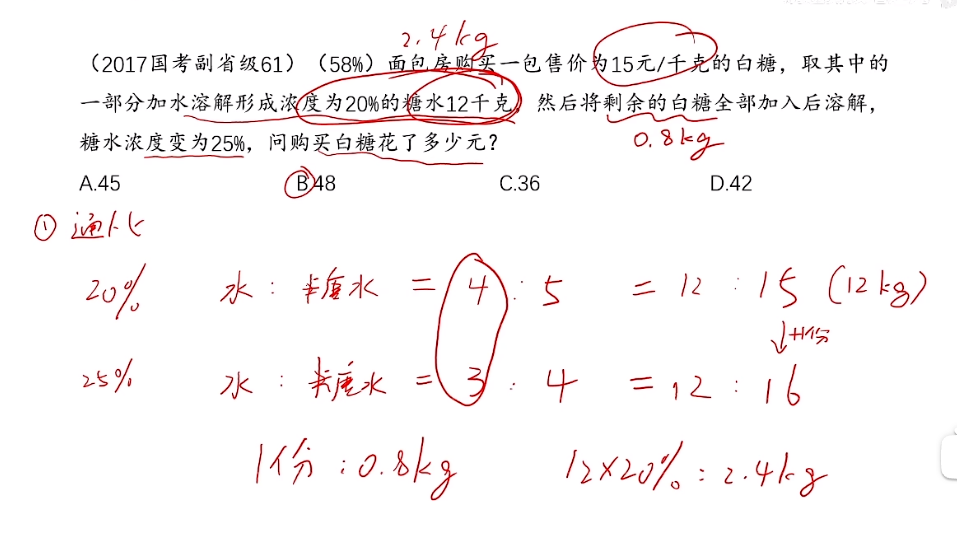 2.4kg
(2017国考副省级61)(58%)面包房购买一包售价为15元/千克的白糖，取其中的
一部分加水溶解形成浓度为20%的糖水12千克，然后将剩余的白糖全部加入后溶解，
糖水浓度变为25%，问购买白糖花了多少元？
0.8kg
A.45 B.48 C.36 D.42
① 通比
20% 水：糖水 = 4 : 5 = 12 : 15 (12kg)
↓+1份
25% 水：糖水 = 3 : 4 = 12 : 16
1份：0.8kg 12×20%：2.4kg